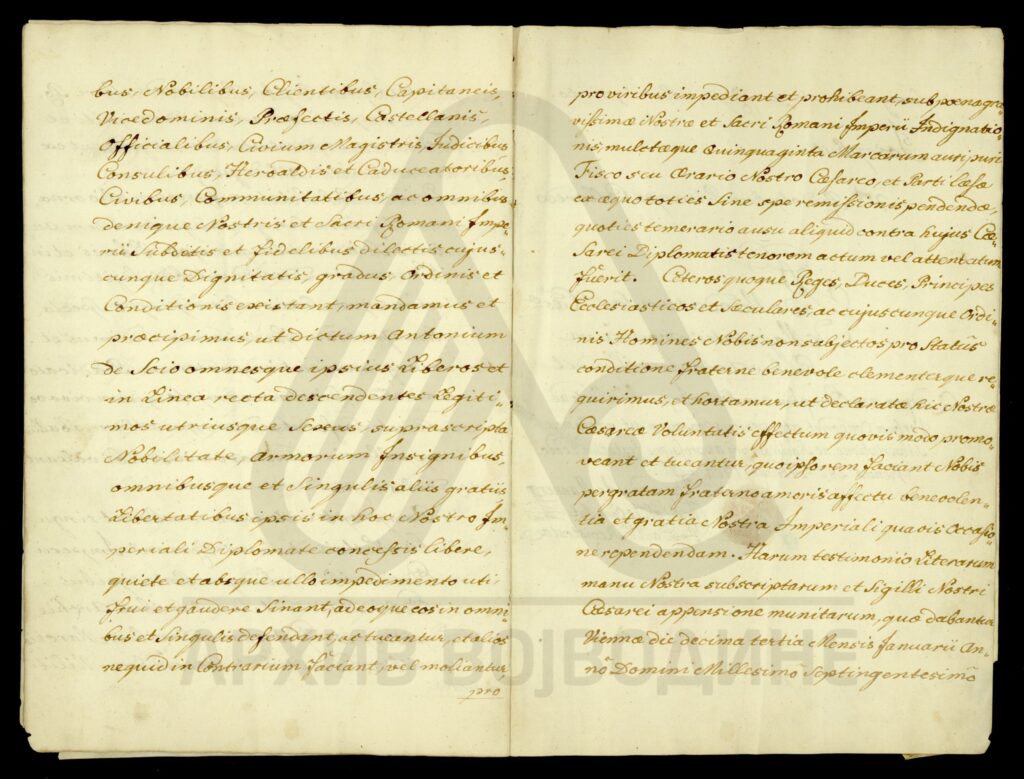 bus, Nobilibus, Clientibus, Capitaneis,
Vicedominis, Præfectis, Castellanis,
Officialibus, Civium Magistris, Judicibus
Consulibus, Heroaldis et Caduceatoribus,
Civibus, Communitatibus, ac omnibus
denique Nostris et Sacri Romani Impe-
rii Subditis et Fidelibus dilectis cujus-
cunque Dignitatis, gradus, Ordinis et
Conditionis existant, mandamus et
præcipimus, ut dictum Antonium
de Scio omnesque ipsius Liberos et
in Linea recta descendentes Legiti-
mos utriusque Sexus, suprascripta
Nobilitate, Armorum Insignibus
omnibusque et Singulis aliis gratiis,
Libertatibus ipsis in hoc Nostro Im-
periali Diplomate concessis libere,
quiete et absque ullo impedimento uti
frui et gaudere Sinant, adeoque eos in omni-
bus et Singulis defendant, ac tueantur, et alios
ne quid in Contrarium faciant, vel moliantur,
pro
pro viribus impediant et prohibeant, sub poena gra-
vissimæ Nostræ et Sacri Romani Imperii Indignatio-
nis, mulctæque Quinquaginta Marcarum auri, puri
Fisco seu Ærario Nostro Cæsareo, et Parti læsæ
ex æquo toties Sine spe remissionis pendendæ,
quoties temerario ausu aliquid contra hujus Cæ-
sarei Diplomatis tenorem actum vel attentatum
fuerit. Ceteros quoque Reges, Duces, Principes
Ecclesiasticos et Sæculares, ac cujuscunque Ordi-
nis Homines Nobis non subjectos pro Statûs
conditione fraterne benevole clementerque re-
quirimus, et hortamur, ut declaratæ hic Nostræ
Cæsareæ Voluntatis effectum quovis modo promo-
veant et tueantur, quo ipso rem faciant Nobis
pergratam fraterno amoris affectu benevolen-
tia et gratia Nostra Imperiali quavis Occasio-
ne rependendam. Harum testimonio Literarum
manu Nostra subscriptarum et Sigilli Nostri
Cæsarei appensione munitarum, quæ dabantur
Viennæ die decima tertia Mensis Januarii An-
nô Domini Millesimô Septingentesimô
АРХИВ ВОЈВОДИНЕ